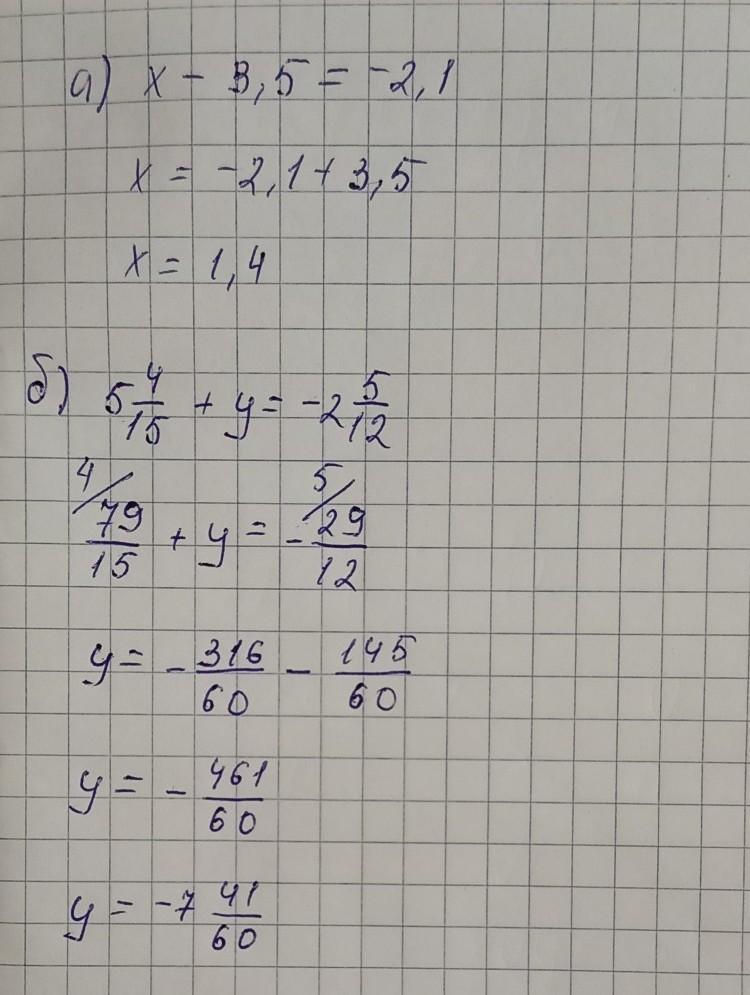 а) x - 3,5 = -2,1
x = -2,1 + 3,5
x = 1,4
б) 5 4/15 + y = -2 5/12
4/ 79/15 + y = - 5/ 29/12
y = - 316/60 - 145/60
y = - 461/60
y = -7 41/60